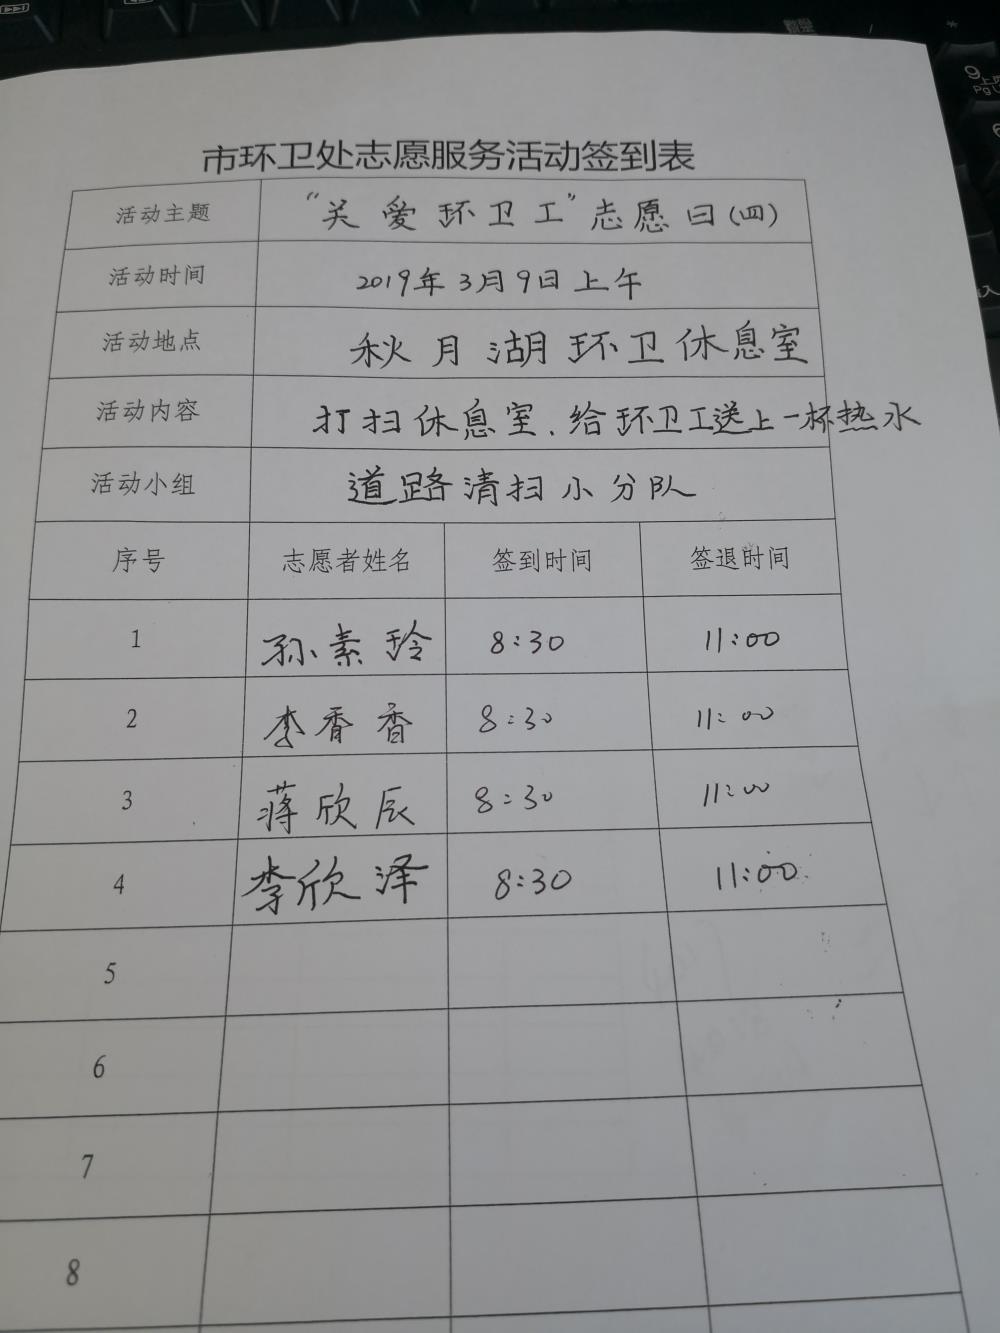 市环卫处志愿服务活动签到表
活动主题 “关爱环卫工”志愿日(四)
活动时间 2019年3月9日上午
活动地点 秋月湖环卫休息室
活动内容 打扫休息室、给环卫工送上一杯热水
活动小组 道路清扫小分队
序号 志愿者姓名 签到时间 签退时间
1 孙素玲 8:30 11:00
2 李香香 8:30 11:00
3 蒋欣辰 8:30 11:00
4 李欣泽 8:30 11:00
5
6
7
8